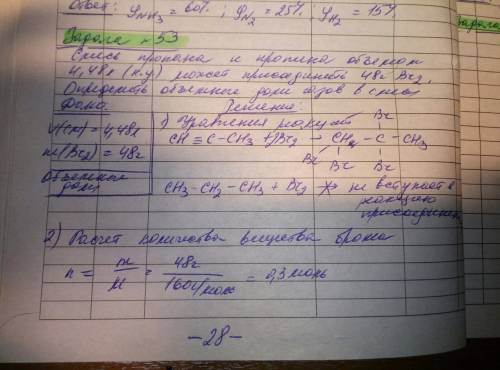 Ответ: φNH₃ = 60% ; φN₂ = 25% ; φH₂ = 15%
Задача №53
Смесь пропана и пропина объемом
4,48л (н.у) может присоединить 48г Br₂.
Определить объемные доли газов в смеси
Дано: Решение:
V(см) = 4,48л
m(Br₂) = 48г
Объемные
доли
1) Уравнения реакций
Br
CH≡C-CH₃ + Br₂ → CH - C - CH₃
Br Br Br
CH₃-CH₂-CH₃ + Br₂ → не вступает в
реакцию
присоединен
2) Расчет количества вещества брома
n = m/M = 48г/160г/моль = 0,3 моль
-28-
задача